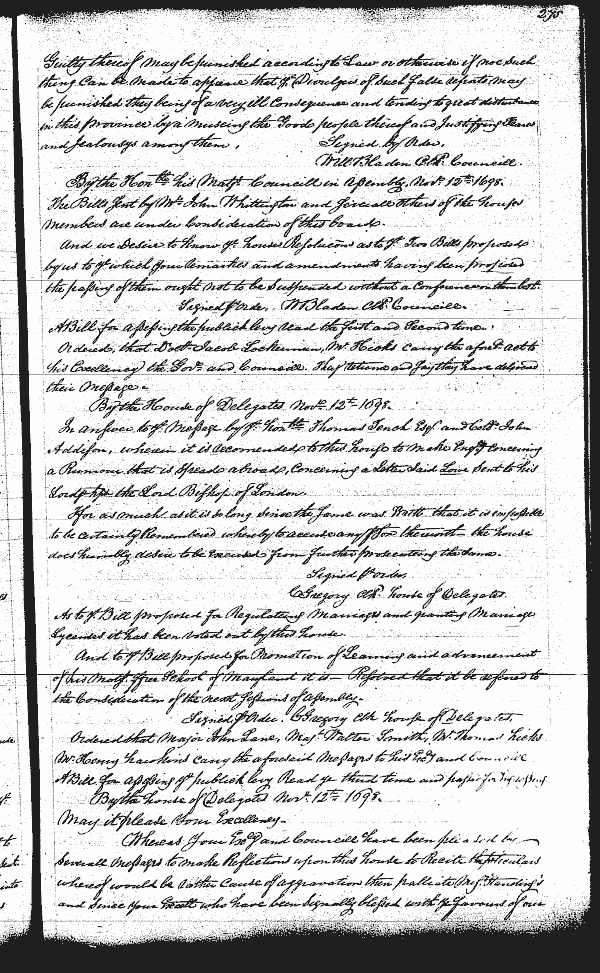 275
Guilty thereof may be punished according to Law or otherwise if noe Such
thing Can be made to appeare that ye Divulgers of Such false reports may
be punished they being of a very ill Consequence and tending to great disturbance
in this Province by a museing the Good people thereof and Justifying Feares
and Jealousys among them.
Signed by Order,
Will Bladen Clk. Councill.
By the Honble his Matys Councill in Assembly, Novr. 12th 1698.
The Bills Sent by Mr. John Whittington and Severall others of the house
members are under Consideration of this board.
And we Desire to know ye houses Resolucons as to ye Two Bills proposed
by us to ye which your remarkes and amendments having been proposed
the passing of them ought not to be Suspended without a Conference on them both.
Signed p Order, W Bladen Clk. Councill.
A Bill for assessing the publick levy read the first and Second time.
Ordered, that Doctr. Jacob Lockerman, Mr. Hicks carry the aforsd. act to
his Excellency the Govr. and Councill. They returne and say they have delivered
their Message.
By the House of Delegates Novr. 12th 1698.
In answer to ye Message by ye honble Thomas Tench Esqr and Collo John
Addison, wherein it is recomended to this house to make Enqry Concerning
a Rumour that is Spread abroad, Concerning a Letter Said Sent to his
Lordshps the Lord Bishop of London.
Fforasmuch as it is So long Since the Same was Wrote that it is impossible
to be certainly Remembred whereby to accuse any pson therewith the house
does humbly desire to be Excused from further prosecuting the Same.
Signed p order,
C Gregory Clk. house of Delegates.
As to ye Bill proposed for Regulating Marriages and granting Marriage
Lycenses it has been voted out by this house.
And to ye Bill proposed for Promotion of Learning and advancement
of his Matys. ffree School of Maryland it is Resolved that it be referred to
the Consideration of the next Sessions of Assembly.
Signed p Order. C Gregory Clk house of Delegates.
Ordered that Major John Lane, Majr. Walter Smith, Mr. Thomas Hicks
Mr. Henry hawkins carry the aforesaid Messages to his Excy and Councill
A Bill for assessing ye publick levy Read ye third time and
By the house of Delegates Novr. 12th 1698.
May it please your Excellency
Whereas Your Excy and Councill have been pleased by
Severall messages to make Reflections upon this house to Recite the pticulars
whereof would be rather Cause of aggravation then palliate
and Since your Excell who have been Signally blessed with ye favours of our